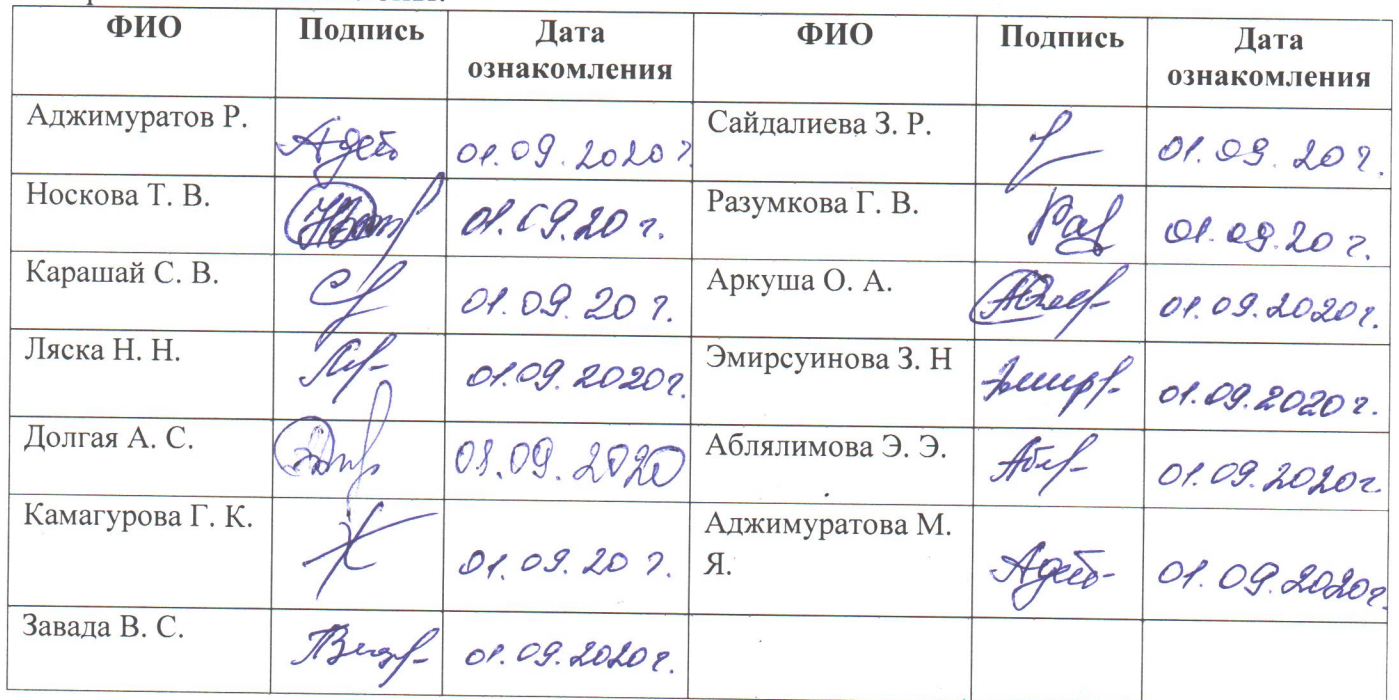 ФИО Подпись Дата ознакомления ФИО Подпись Дата ознакомления
Аджимуратов Р. 01.09.2020 г Сайдалиева З. Р. 01.09.20 г.
Носкова Т. В. 01.09.20 г. Разумкова Г. В. Раз 01.09.20 г.
Карашай С. В. 01.09.20 г. Аркуша О. А. 01.09.2020г.
Ляска Н. Н. 01.09.2020г. Эмирсуинова З. Н 01.09.2020 г.
Долгая А. С. 01.09.2020 Аблялимова Э. Э. 01.09.2020г.
Камагурова Г. К. 01.09.20 г. Аджимуратова М. Я. 01.09.2020г.
Завада В. С. 01.09.2020 г.